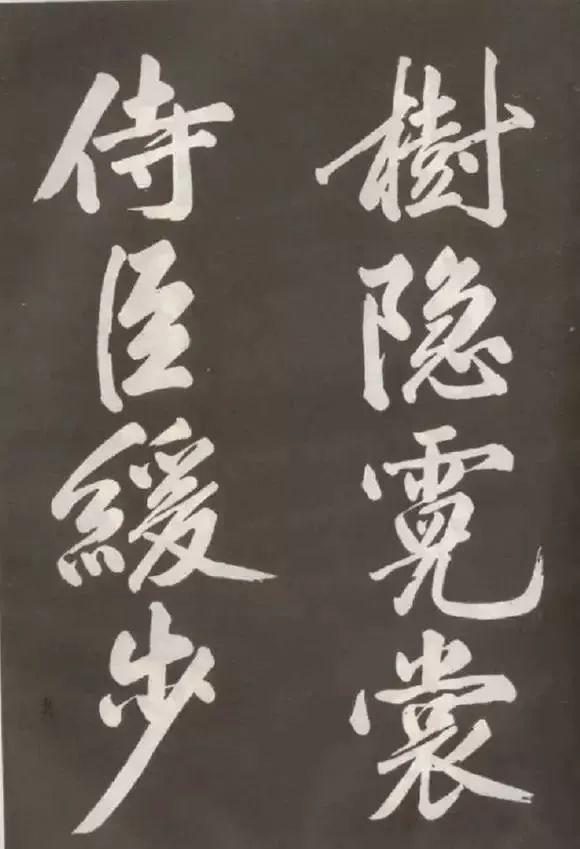 樹隐霓裳
侍臣緩步